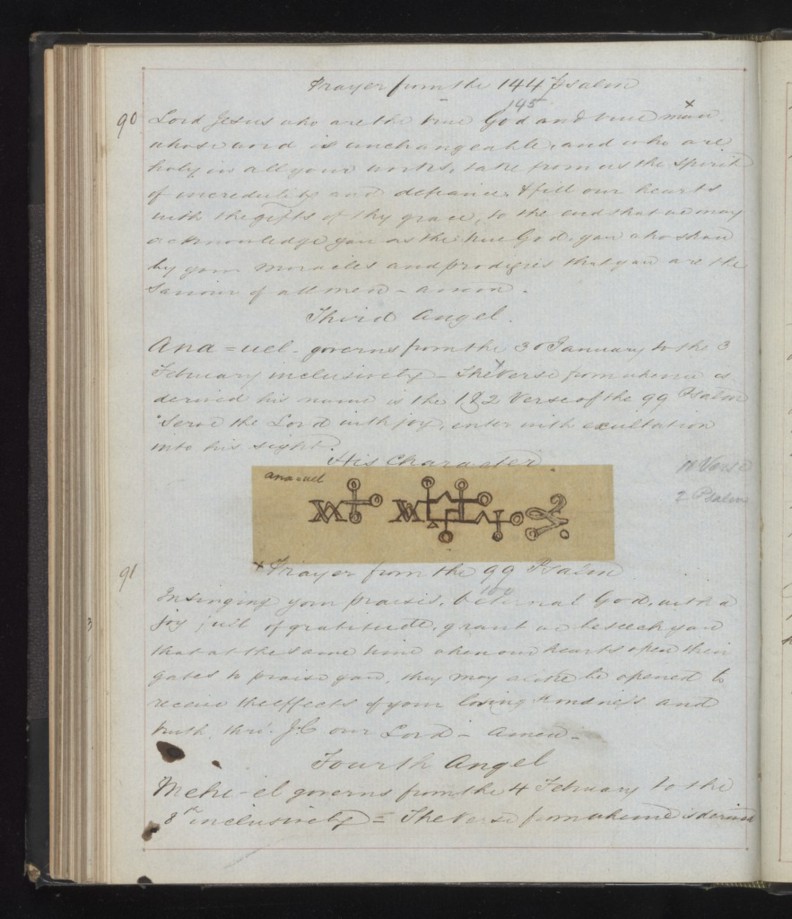 Prayer from the 144 Psalm
145
90 Lord Jesus who are the true God and true man x
whose word is unchangeable, and who are
holy in all your works, take from us the spirit
of incredulity and defiance, & fill our hearts
with the gifts of thy grace, to the end that we may
acknowledge you as the true God, you who show
by your miracles and prodigies that you are the
Saviour of all men - amen.
Third Angel.
Ana=uel. governs from the 30 January to the 3
February inclusively - The Verse from whence is
derived his name is the 1 & 2 Verse of the 99 Psalm
"Serve the Lord with joy, enter with exultation
into his sight.
His Character.
11 Verse
2 Psalm
ana=uel
x Prayer from the 99 Psalm
100
91 In singing your praises, O eternal God, with a
joy full of gratitude, grant we beseech you
that at the same time when our hearts open their
gates to praise you, they may be opened to
receive the effects of your loving kindness and
truth. thro. J.C our Lord - amen -
3
Fourth Angel
Mehi-el governs from the 4 February to the
8th inclusively = The Verse from whence is derived